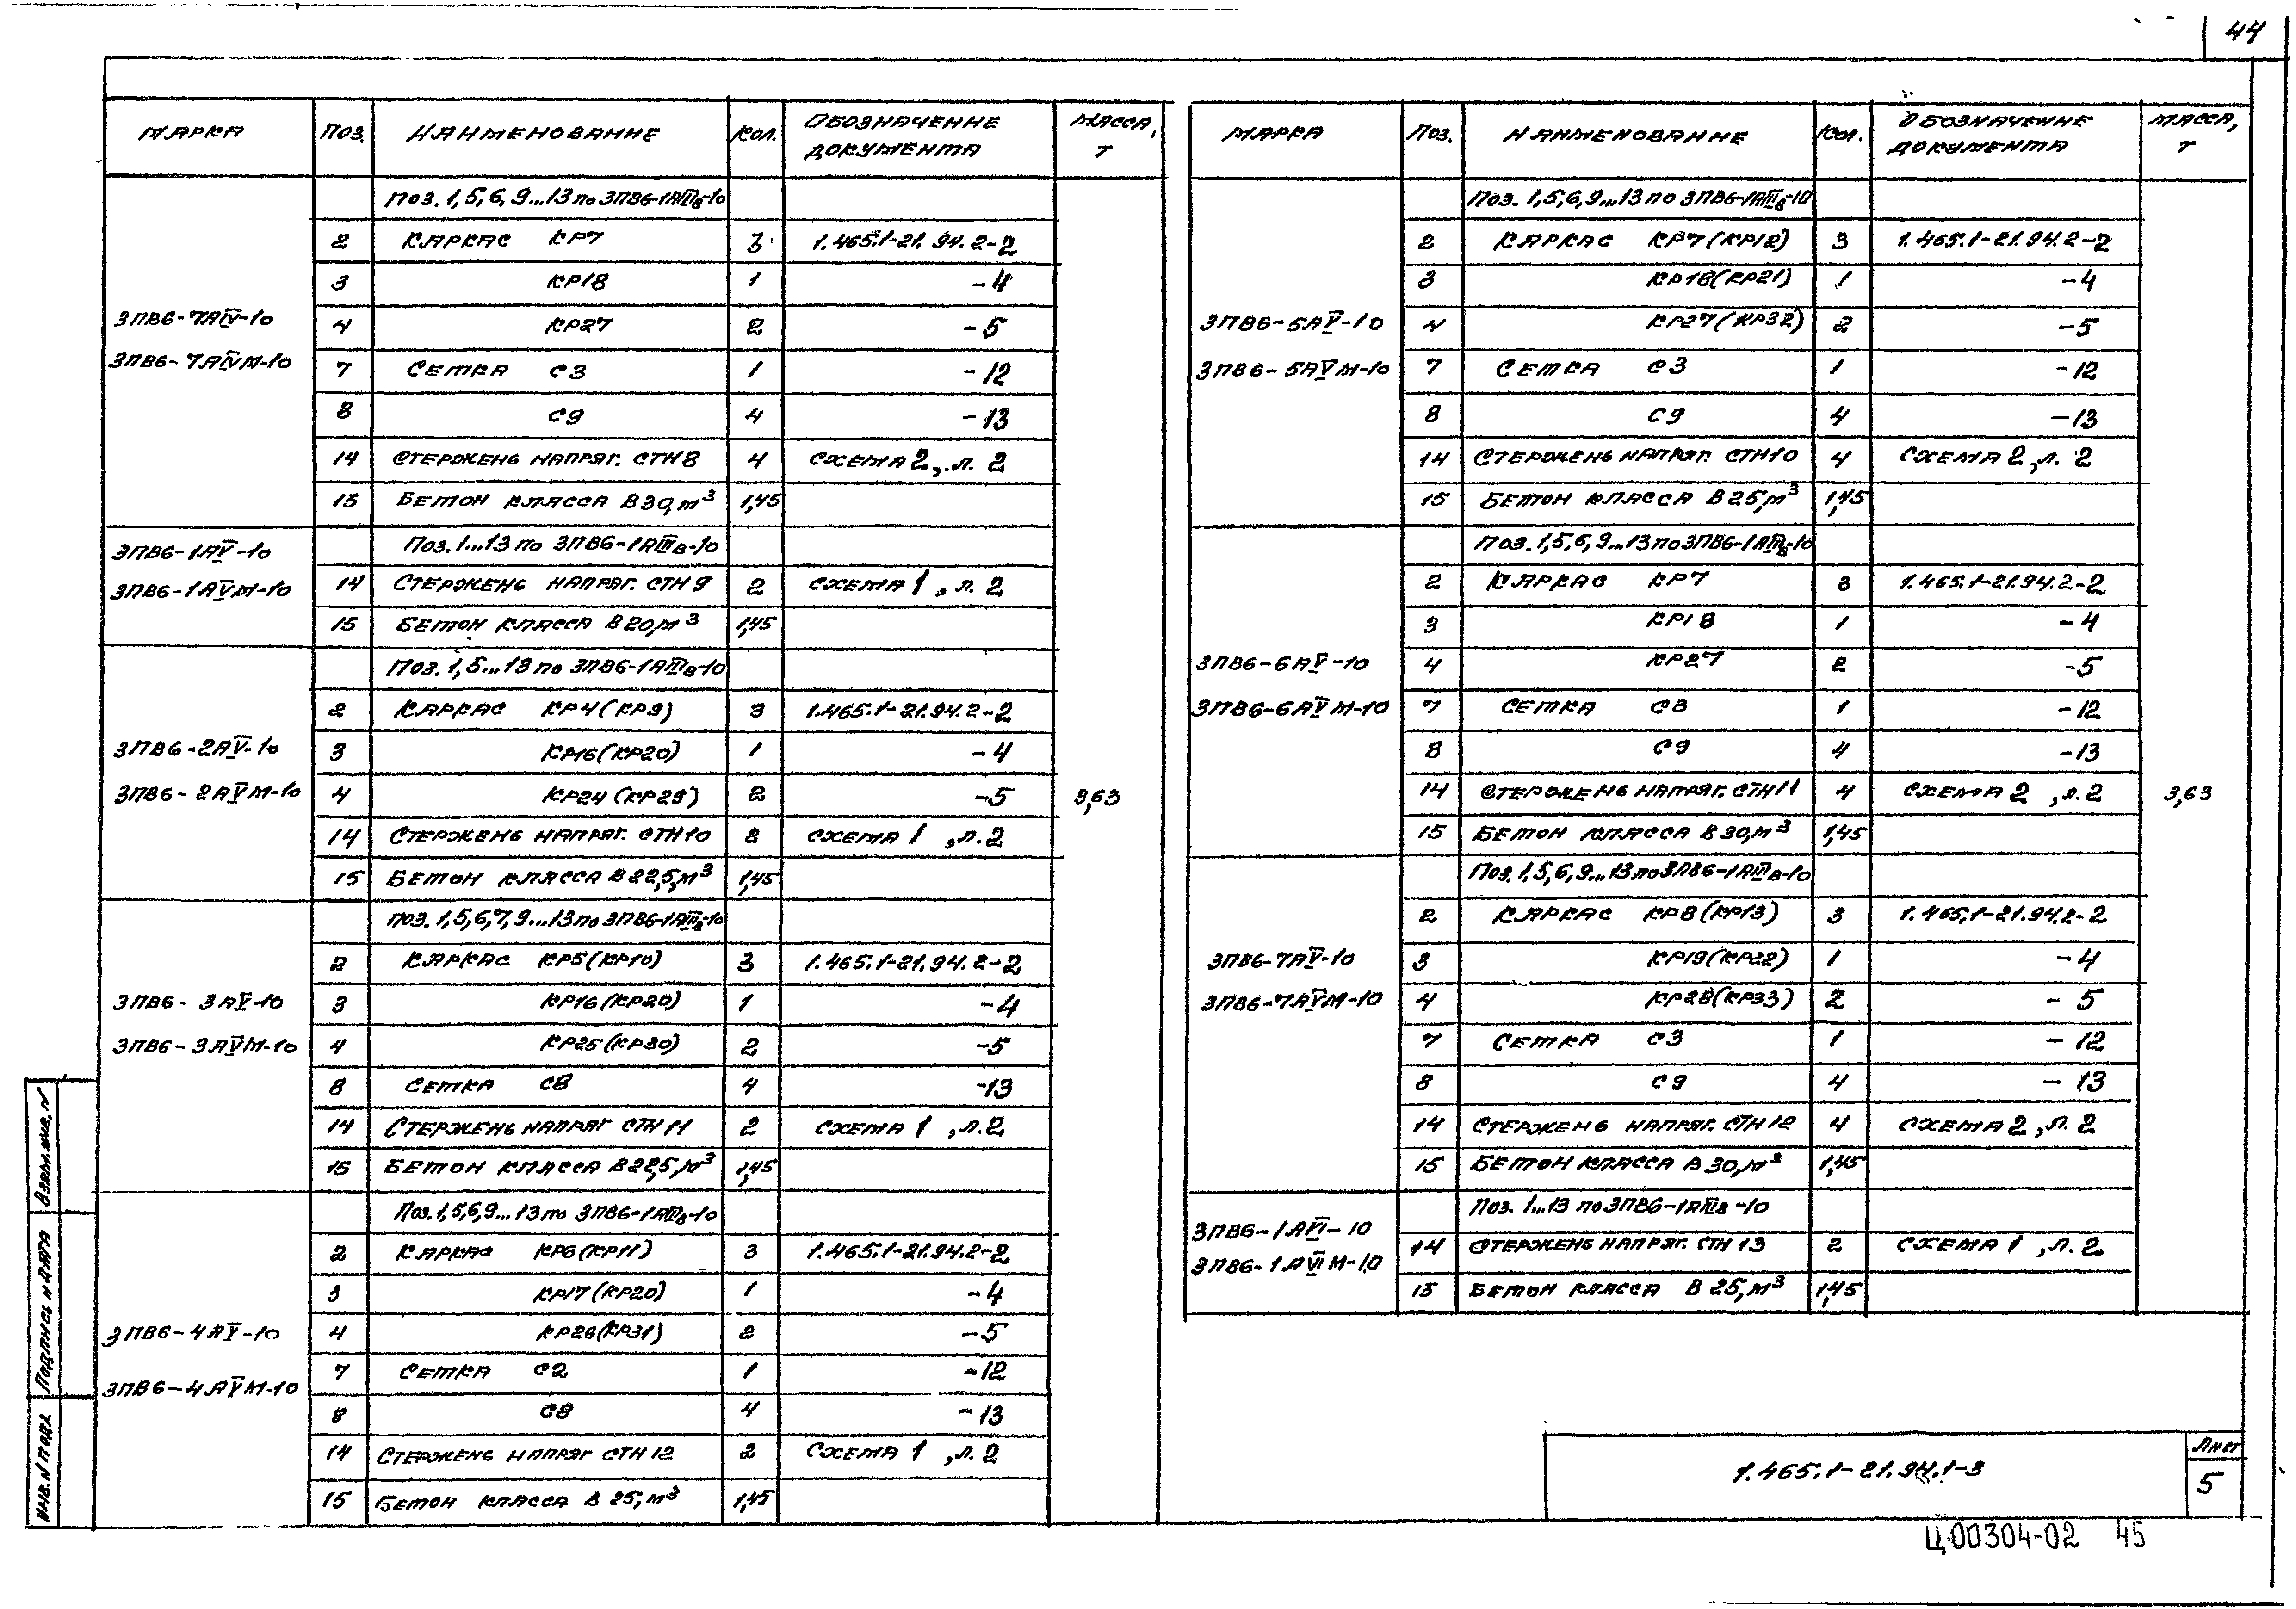 44
МАРКА ПОЗ. НАИМЕНОВАНИЕ КОЛ. ОБОЗНАЧЕНИЕ ДОКУМЕНТА МАССА, Т
3ПВ6-7АIV-10
3ПВ6-7АIVМ-10
Поз. 1,5,6,9...13 по 3ПВ6-1АIIIв-10
2 КАРКАС КР7 3 1.465.1-21.94.2-2
3 КР18 1 -4
4 КР27 2 -5
7 СЕТКА С3 1 -12
8 С9 4 -13
14 СТЕРЖЕНЬ НАПРЯГ. СТН8 4 СХЕМА 2, л. 2
15 БЕТОН КЛАССА В30, м³ 1,45
3ПВ6-1АV-10
3ПВ6-1АVМ-10
Поз. 1...13 по 3ПВ6-1АIIIв-10
14 СТЕРЖЕНЬ НАПРЯГ. СТН9 2 СХЕМА 1, л. 2
15 БЕТОН КЛАССА В20, м³ 1,45
3ПВ6-2АV-10
3ПВ6-2АVМ-10
Поз. 1,5...13 по 3ПВ6-1АIIIв-10
2 КАРКАС КР4(КР9) 3 1.465.1-21.94.2-2
3 КР16(КР20) 1 -4
4 КР24(КР29) 2 -5
14 СТЕРЖЕНЬ НАПРЯГ. СТН10 2 СХЕМА 1, л. 2
15 БЕТОН КЛАССА В22,5, м³ 1,45
3,63
3ПВ6-3АV-10
3ПВ6-3АVМ-10
поз. 1,5,6,7,9...13 по 3ПВ6-1АIIIв-10
2 КАРКАС КР5(КР10) 3 1.465.1-21.94.2-2
3 КР16(КР20) 1 -4
4 КР25(КР30) 2 -5
8 СЕТКА С8 4 -13
14 СТЕРЖЕНЬ НАПРЯГ СТН11 2 СХЕМА 1, л. 2
15 БЕТОН КЛАССА В22,5, м³ 1,45
3ПВ6-4АV-10
3ПВ6-4АVМ-10
Поз. 1,5,6,9...13 по 3ПВ6-1АIIIв-10
2 КАРКАС КР6(КР11) 3 1.465.1-21.94.2-2
3 КР17(КР20) 1 -4
4 КР26(КР31) 2 -5
7 СЕТКА С2 1 -12
8 С8 4 -13
14 СТЕРЖЕНЬ НАПРЯГ СТН12 2 СХЕМА 1, л. 2
15 БЕТОН КЛАССА В 25, м³ 1,45
МАРКА ПОЗ. НАИМЕНОВАНИЕ КОЛ. ОБОЗНАЧЕНИЕ ДОКУМЕНТА МАССА, Т
3ПВ6-5АV-10
3ПВ6-5АVМ-10
Поз. 1,5,6,9...13 по 3ПВ6-1АIIIв-10
2 КАРКАС КР7(КР12) 3 1.465.1-21.94.2-2
3 КР18(КР21) 1 -4
4 КР27(КР32) 2 -5
7 СЕТКА С3 1 -12
8 С9 4 -13
14 СТЕРЖЕНЬ НАПРЯГ. СТН10 4 СХЕМА 2, л. 2
15 БЕТОН КЛАССА В25, м³ 1,45
3ПВ6-6АV-10
3ПВ6-6АVМ-10
Поз. 1,5,6,9...13 по 3ПВ6-1АIIIв-10
2 КАРКАС КР7 3 1.465.1-21.94.2-2
3 КР18 1 -4
4 КР27 2 -5
7 СЕТКА С3 1 -12
8 С9 4 -13
14 СТЕРЖЕНЬ НАПРЯГ. СТН11 4 СХЕМА 2, л. 2
15 БЕТОН КЛАССА В30, м³ 1,45
3,63
3ПВ6-7АV-10
3ПВ6-7АVМ-10
Поз. 1,5,6,9...13 по 3ПВ6-1АIIIв-10
2 КАРКАС КР8(КР13) 3 1.465.1-21.94.2-2
3 КР19(КР22) 1 -4
4 КР28(КР33) 2 -5
7 СЕТКА С3 1 -12
8 С9 4 -13
14 СТЕРЖЕНЬ НАПРЯГ. СТН12 4 СХЕМА 2, л. 2
15 БЕТОН КЛАССА В30, м³ 1,45
3ПВ6-1АVI-10
3ПВ6-1АVIМ-10
Поз. 1...13 по 3ПВ6-1АIIIв-10
14 СТЕРЖЕНЬ НАПРЯГ. СТН 13 2 СХЕМА 1, л. 2
15 БЕТОН КЛАССА В 25, м³ 1,45
ИНВ. N ПОДЛ. ПОДПИСЬ И ДАТА ВЗАМ. ИНВ. N
1.465.1-21.94.1-3
ЛИСТ
5
Ц00304-02 45